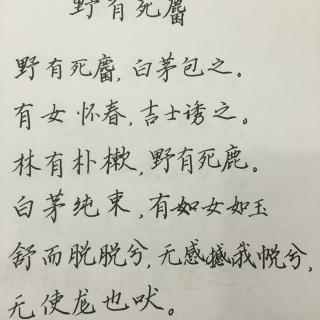 野有死麕
野有死麕,白茅包之。
有女怀春,吉士诱之。
林有朴樕,野有死鹿。
白茅纯束,有如女如玉
舒而脱脱兮,无感撼我帨兮,
无使龙也吠。